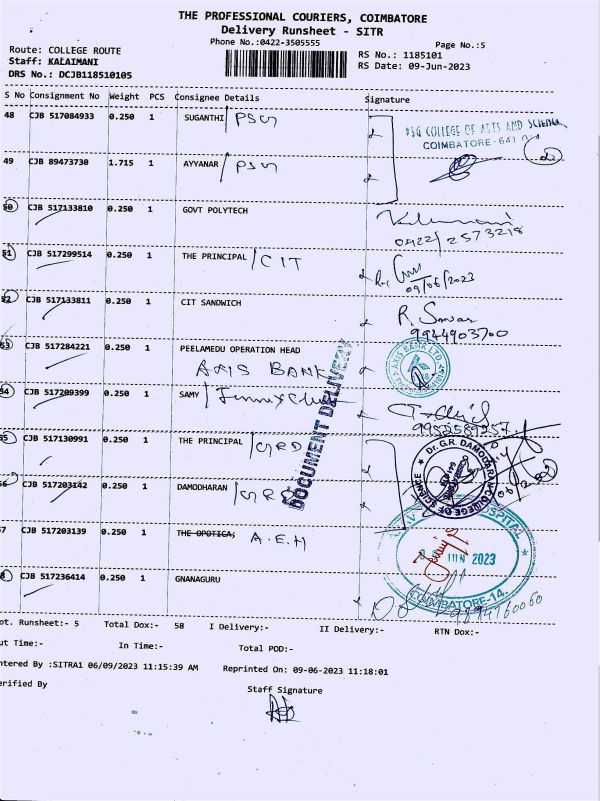 THE PROFESSIONAL COURIERS, COIMBATORE
Delivery Runsheet - SITR
Phone No.:0422-3505555
Page No.:5
Route: COLLEGE ROUTE
Staff: KALAIMANI
DRS No.: DCJB118510105
RS No.: 1185101
RS Date: 09-Jun-2023
S No Consignment No Weight PCS Consignee Details Signature
48 CJB 517084933 0.250 1 SUGANTHI / PSG
PSG COLLEGE OF ARTS AND SCIENCE
COIMBATORE-641
49 CJB 89473730 1.715 1 AYYANAR / PSG
50 CJB 517133810 0.250 1 GOVT POLYTECH
0422/2573218
51 CJB 517299514 0.250 1 THE PRINCIPAL / CIT
09/06/2023
52 CJB 517133811 0.250 1 CIT SANDWICH
9944903700
53 CJB 517284221 0.250 1 PEELAMEDU OPERATION HEAD
AXIS BANK
AXIS BANK LTD.
54 CJB 517209399 0.250 1 SAMY
DOCUMENT DELIVERY
55 CJB 517130991 0.250 1 THE PRINCIPAL / GRD
Dr. G.R. DAMODARAN COLLEGE OF SCIENCE
56 CJB 517203142 0.250 1 DAMODHARAN / GRD
57 CJB 517203139 0.250 1 THE OPOTICA; A.E.H
JUN 2023
COIMBATORE-14
58 CJB 517236414 0.250 1 GNANAGURU
9894760060
ot. Runsheet:- 5 Total Dox:- 58 I Delivery:- II Delivery:- RTN Dox:-
ut Time:- In Time:- Total POD:-
ntered By :SITRA1 06/09/2023 11:15:39 AM Reprinted On: 09-06-2023 11:18:01
erified By
Staff Signature